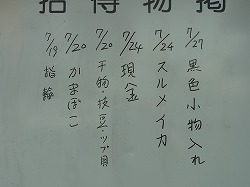 拾得物掲
7/19 指輪
7/20 かまぼこ
7/20 干物・枝豆・ツブ貝
7/24 現金
7/24 スルメイカ
7/27 黒色小物入れ